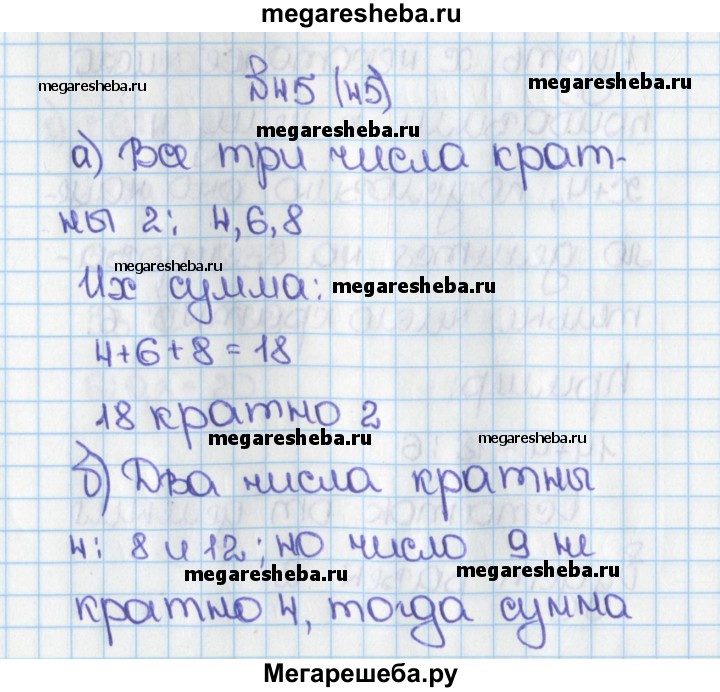 megaresheba.ru
№45 (45)
megaresheba.ru
megaresheba.ru
megaresheba.ru
а) Все три числа крат-
ны 2: 4,6,8
megaresheba.ru
Их сумма:
megaresheba.ru
4+6+8=18
18 кратно 2
megaresheba.ru
megaresheba.ru
б) Два числа кратны
4: 8 и 12; но число 9 не
megaresheba.ru
megaresheba.ru
кратно 4, тогда сумма
Мегарешеба.ру